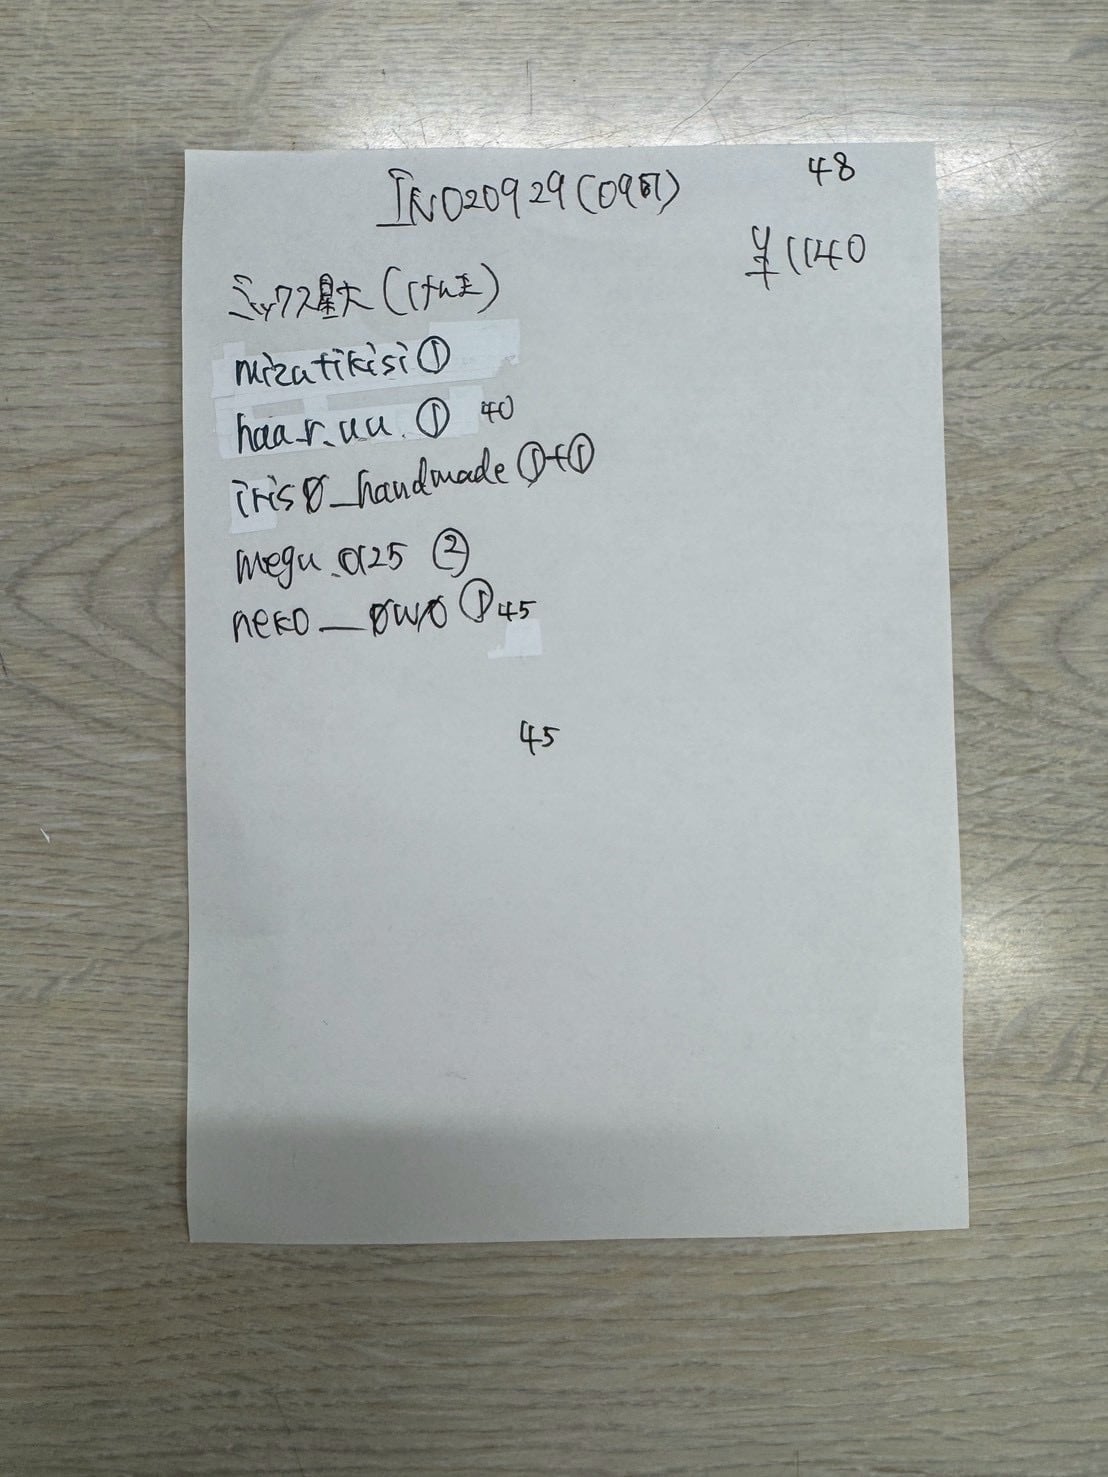 IN020929(09明)
48
¥1140
ミックス量大(けnま)
mizutikisi①
haa_r.uu.① 40
iris0_handmade①+①
megu.0125 ②
neko__0w0①45
45